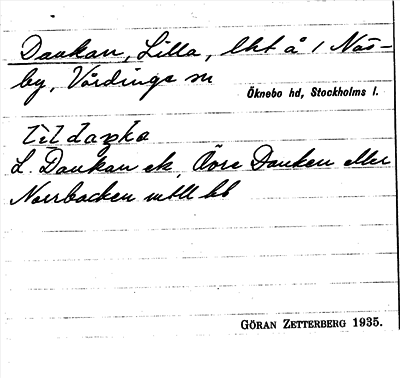 Dankan, Lilla, lht å 1 Näs-
by, Vårdinge sn
Öknebo hd, Stockholms l.
L. Dankan ek, Övre Danken eller
Norrbacken
GÖRAN ZETTERBERG 1935.